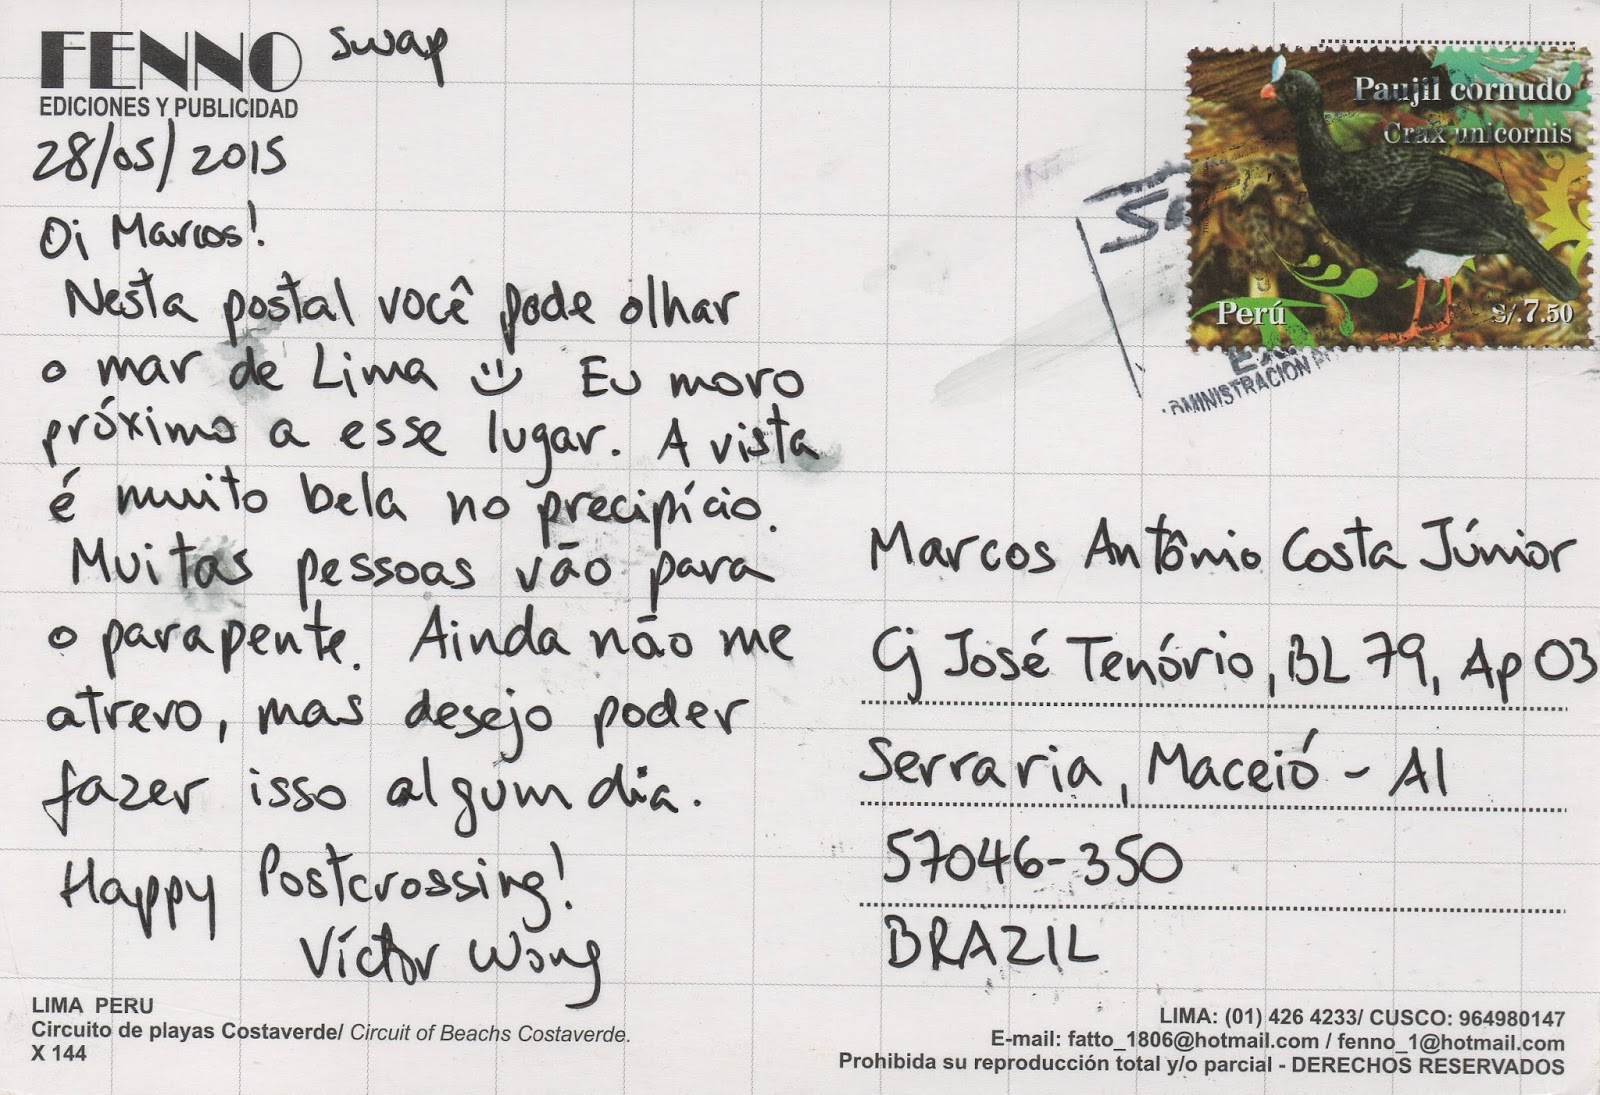 FENNO swap
EDICIONES Y PUBLICIDAD
28/05/2015
Oi Marcos!
Nesta postal você pode olhar
o mar de Lima :) Eu moro
próximo a esse lugar. A vista
é muito bela no precipício.
Muitas pessoas vão para
o parapente. Ainda não me
atrevo, mas desejo poder
fazer isso algum dia.
Happy Postcrossing!
Víctor Wong
LIMA PERU
Circuito de playas Costaverde/ Circuit of Beachs Costaverde.
X 144
Paujíl cornudo
Crax unicornis
Perú S/.7.50
Marcos Antônio Costa Júnior
Cj José Tenório, BL 79, Ap 03
Serraria, Maceió - Al
57046-350
BRAZIL
LIMA: (01) 426 4233/ CUSCO: 964980147
E-mail: fatto_1806@hotmail.com / fenno_1@hotmail.com
Prohibida su reproducción total y/o parcial - DERECHOS RESERVADOS